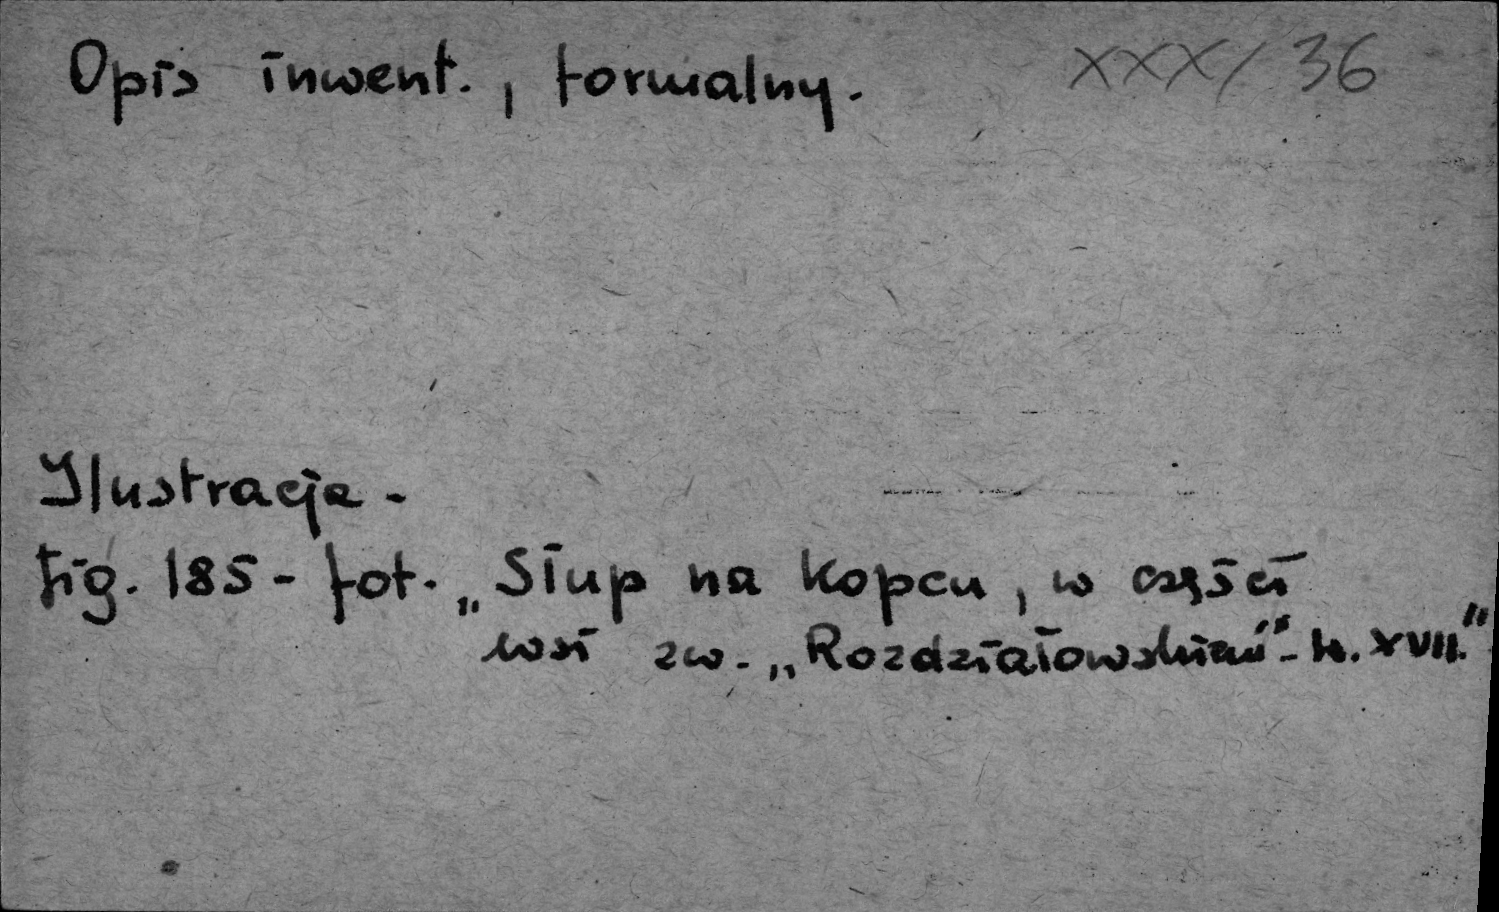 Opis inwent., formalny. XXX/36
Ilustracje -
fig. 185 - fot. „Słup na kopcu, w części
wsi zw. „Rozdziałowskiem" - k. XVII."